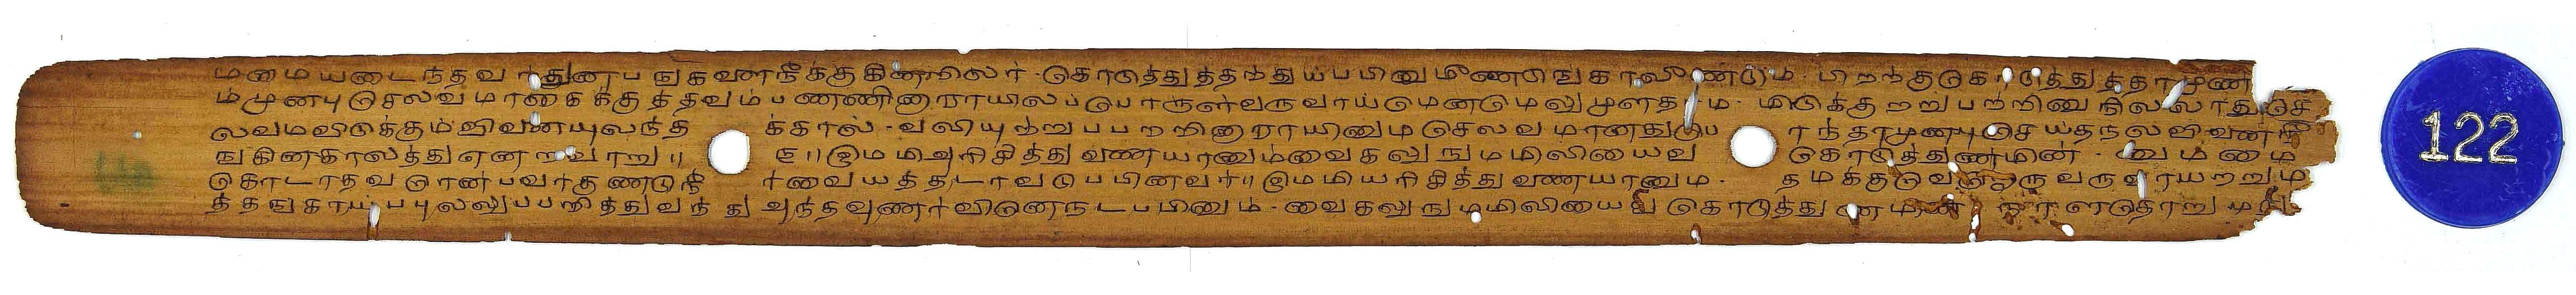 மமையடைந்தவர் துனபஙகளைநீக்குகின்றிலர் - கொடுத்துத்தந்துய்ப்பினுமீண்டுஙகாலீண்டும - பிறந்குகொடுத்துத்தாமுண
ம்முன்புசெலவமாகைக்குத்தவம்பண்ணினராயிலப்பொருள்வருவாய்மெனமேலுமுளதாம - மிடுக்குறறுபற்றினுநிலலாதுசெ
லவமவிடுக்கும்வினையுலந்தக்கால் - வலியுற்றுபபறறினராயினுமசெலவமானதுபேர்ந்தாமுனபுசெய்தநலவினைநீ
ஙகினகாலத்துஎனறவாறு ॥ ௪ ॥ இமமிஅரிசித்துணையானும்வைகலுநுமமிலியைவ கொடுத்துணமின் - வுமமை
கொடாதவரென்பவர்குணடுநீர்வையத்தடாவடுபபினவர் ॥ இமமியரிசித்துணையானும - தமக்குவேறொருவருவாயறறும
த்தஙகாய்பபுலலுபபறித்துவந்து அந்தவுணர்விடுனநடபபினும் - வைகலுநுமமிலியைவ கொடுத்துணமின்
122